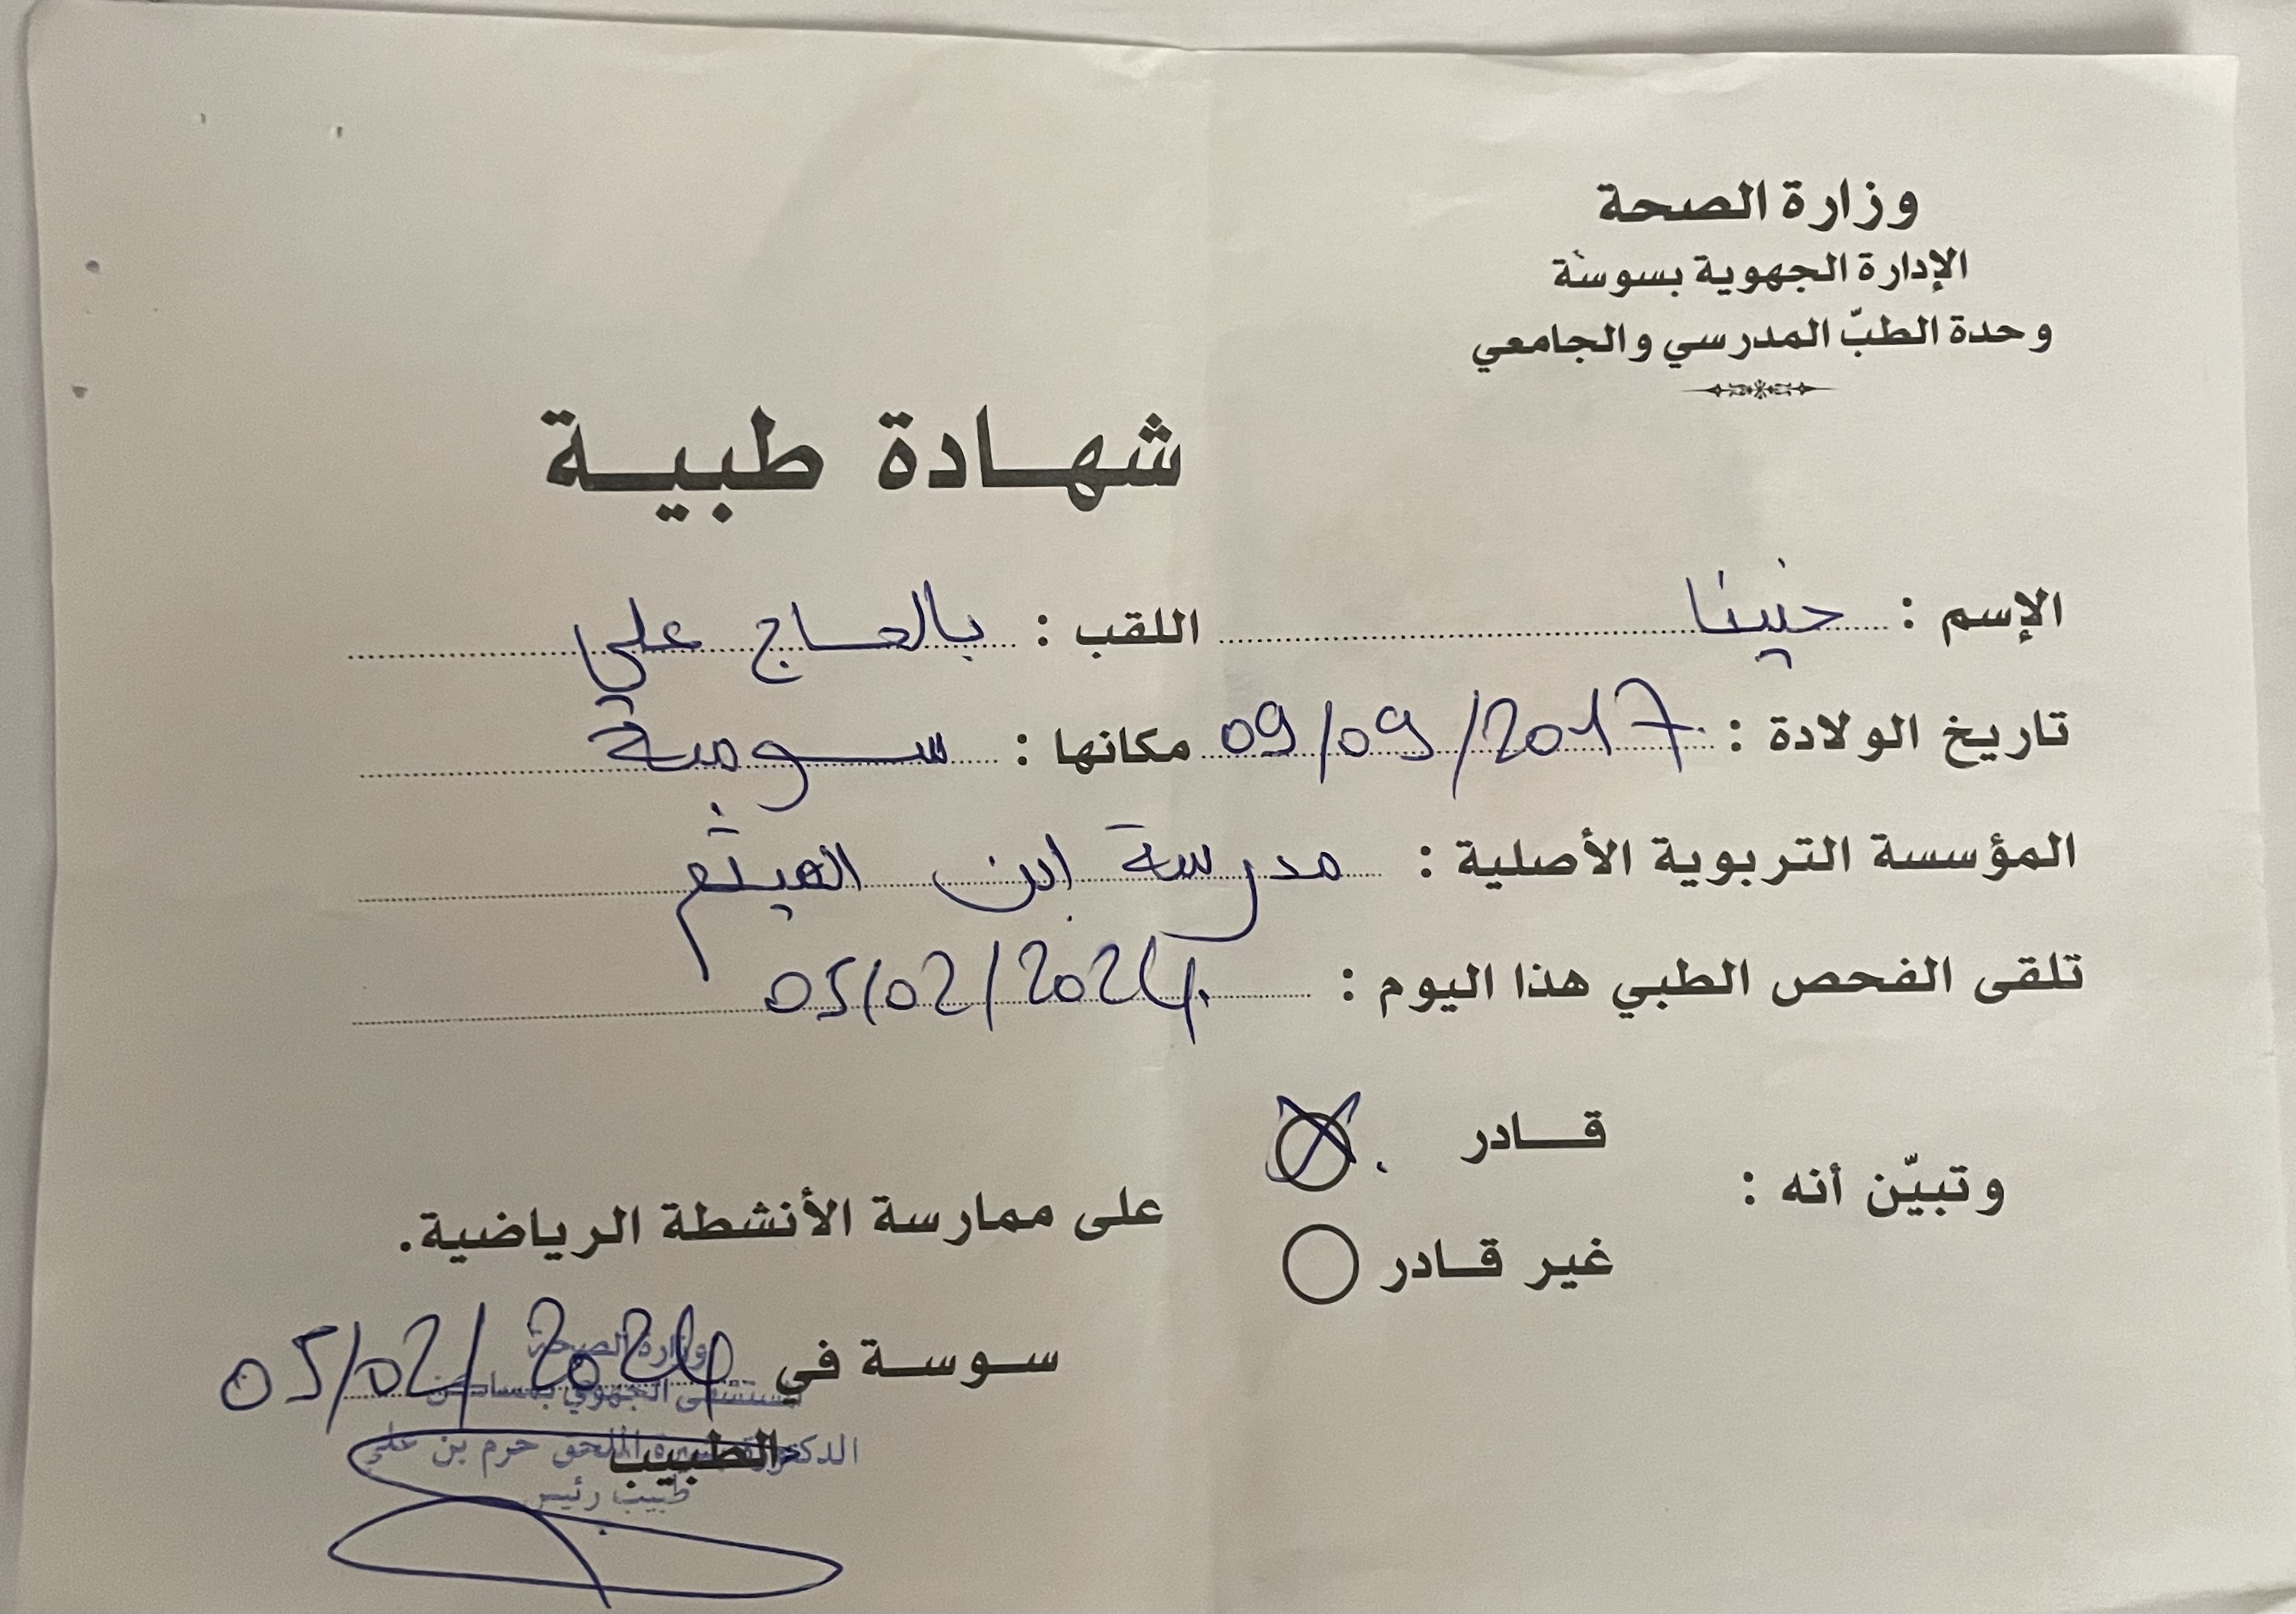 وزارة الصحة
الإدارة الجهوية بسوسة
وحدة الطبّ المدرسي والجامعي
شهادة طبية
الإسم : اللقب : بالحاج علي
تاريخ الولادة : 09/09/2017 مكانها : سوسة
المؤسسة التربوية الأصلية : مدرسة ابن الهيثم
تلقى الفحص الطبي هذا اليوم : 05/02/2024
وتبيّن أنه :
قادر
غير قادر
على ممارسة الأنشطة الرياضية.
سوسة في 05/02/2024
وزارة الصحة
المستشفى الجهوي بمساكن
الطبيب
الدكتورة الملحق حرم بن علي
طبيب رئيس